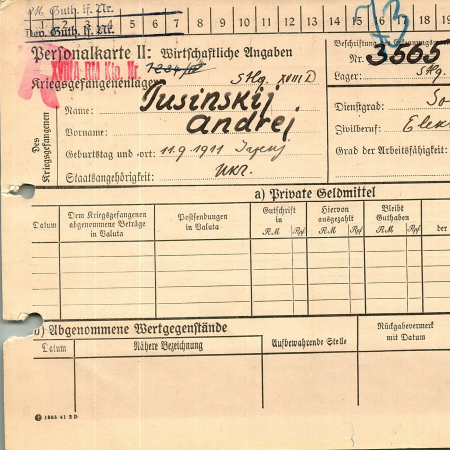 Guth. lf. Nr.
1 2 3 4 5 6 7 8 9 10 11 12 13 14 15 16 17 18
Dep. Guth. lf. Nr.
73
Personalkarte II: Wirtschaftliche Angaben
Beschriftung der Erkennungsmarke
Nr. 3505
Kriegsgefangenenlager: Stlg. XVIII D
Lager: Stlg.
Des Kriegsgefangenen
Name: Tusinskij
Vorname: Andrej
Geburtstag und -ort: 11.9.1911
Staatsangehörigkeit: Ukr.
Dienstgrad: So
Zivilberuf: Elek
Grad der Arbeitsfähigkeit:
a) Private Geldmittel
Datum
Dem Kriegsgefangenen abgenommene Beträge in Valuta
Postsendungen in Valuta
Gutschrift in
RM Rpf
Hiervon ausgezahlt
RM Rpf
Bleibt Guthaben
RM Rpf
der
b) Abgenommene Wertgegenstände
Datum
Nähere Bezeichnung
Aufbewahrende Stelle
Rückgabevermerk mit Datum
1865 41 2 D